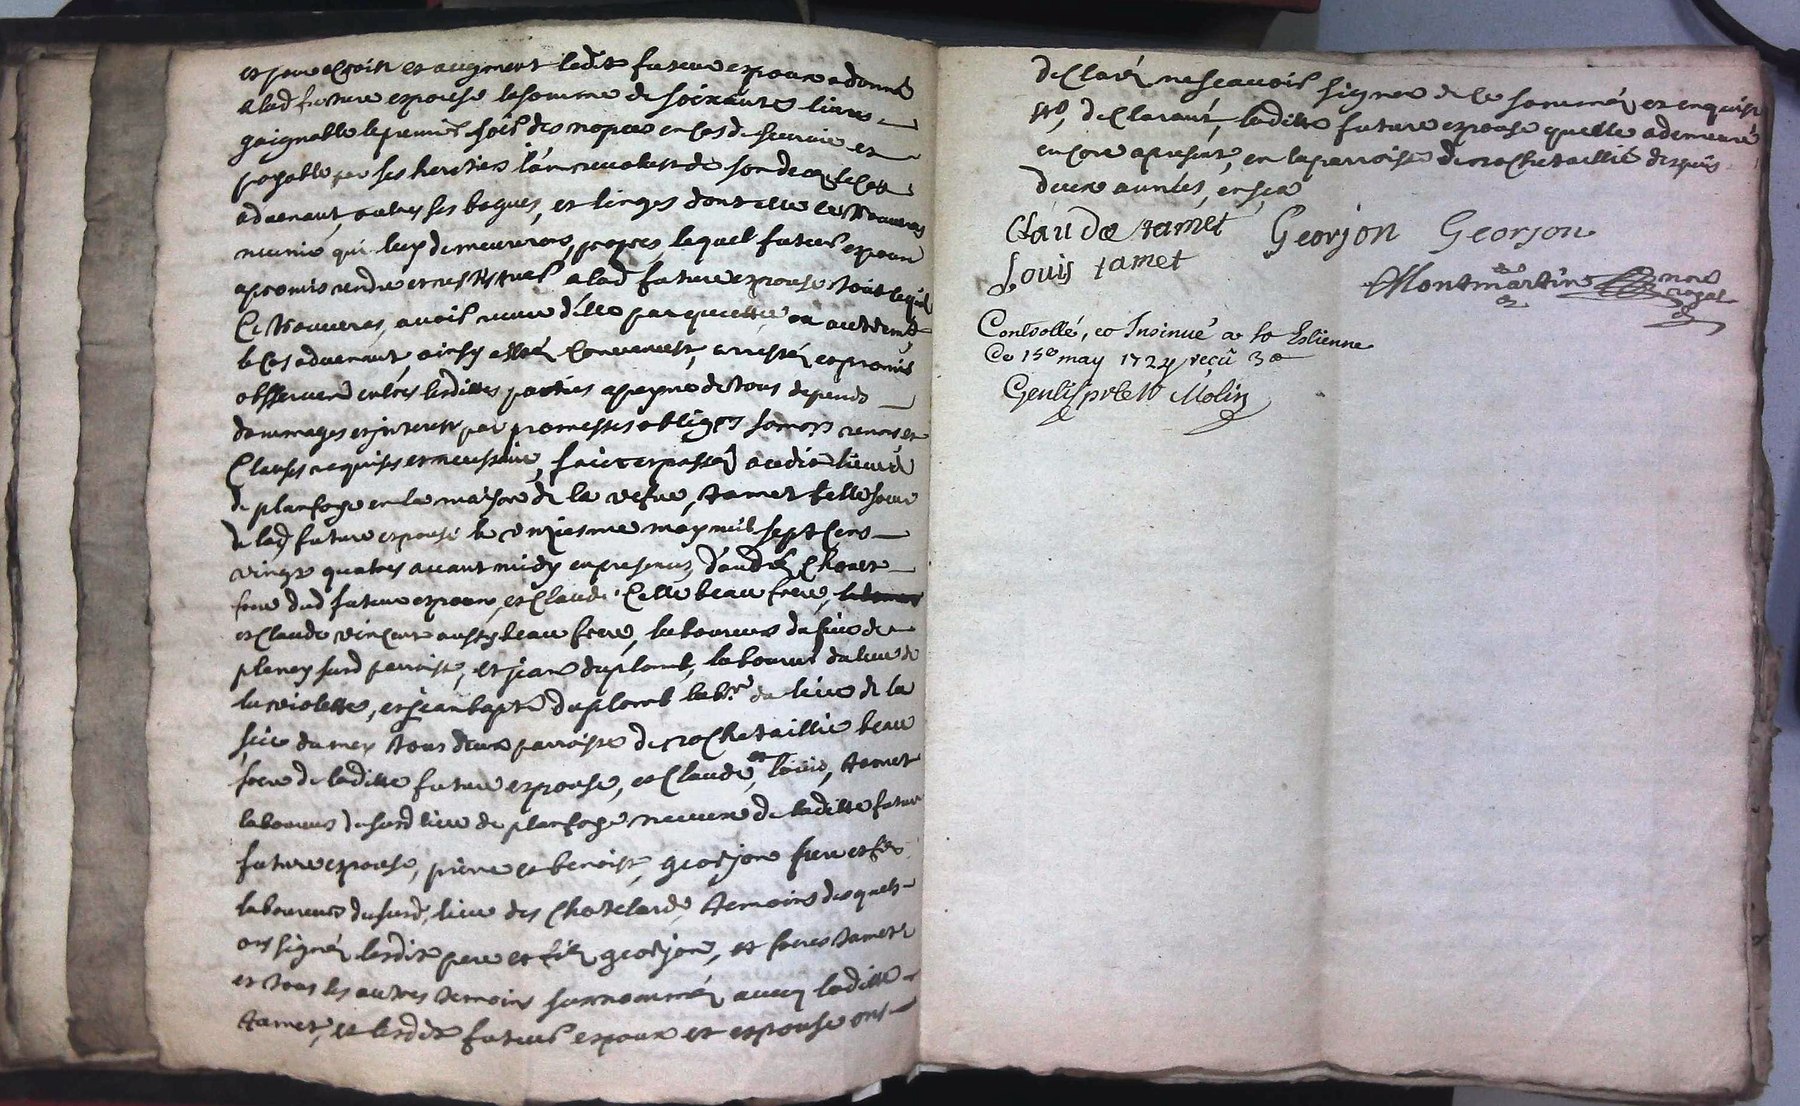 et pour agoin et augment ledit future espoux a donné
a lad future espouse la somme de soixante livres
gaignable le premier soir des nopces en cas de survie et
payable par ses heretiers l'an revolust de son deces le cas
advenant, outres ses bagues, et linges dont elle se trouveras
meunié qui luy demeureront propres, lequel futeur espoux
a promis rendre et restitues a lad future espouse tout ce qu'il
se trouveras, avoir receu d'elle par quictance ou autrement
le cas advenant, ainsy esté convenust, arresté et promis
obsserver entres lesdittes parties a peyne de tous depends
dommages et interest par promesses obliges soms renons et
clauses requises et necessaire, faict et passé audit lieu de
de planfoge en la maison de la vefve, tamet belle soeur
de lad future espouse le onziesme may mil sept cens
vingt quatres avant midy en presences d'andré Chovet
frere dud futeur espoux, et Claude Celle beau frere,
et Claude vincent aussy beau frere, laboureurs du lieu de
planey susd parroisse, et jean duplomb, laboureur du lieu de
la violette, et jean bapte duplomb labr. du lieu de la
du mey tous deux parroisse de rochetaillié beau
frere de laditte future espouse, et Claude et louis, tamet
laboureurs du susd lieu de planfoge neveux de laditte future
future espouse, pierre et benoist, georjon pere et fils
laboureurs du susd, lieu des Chatelards, temoins desquels
ont signé lesdits pere et fils georjon, et freres tamet
et tous les autres temoins surnommés avecq laditte
tamet, et lesdits futeurs espoux et espouse ont
declaré ne scavoir signer de ce sommés et enquis
declarant, laditte future espouse quelle a demeuré
encore a present, en la parroisse de rochetaillié depuis
deux années, en sça
Claude tamet Georjon Georjon
Louis tamet
Montmartin nore royal
Controllé, et Insinué a st Estienne
Ce 15e may 1724 reçû
Molin